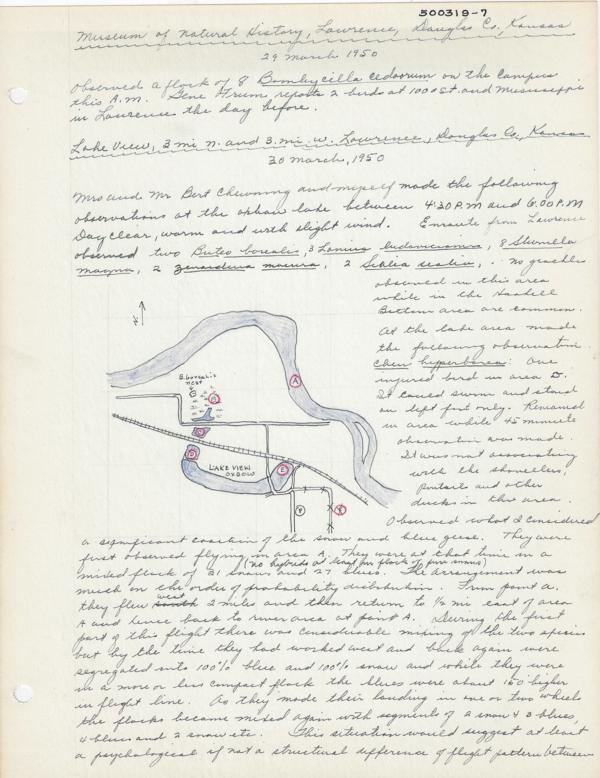 500319-7
Museum of Natural History, Lawrence, Douglas Co, Kansas
29 March 1950
Observed a flock of 8 Bombycilla cedorum on the campus
this A.M. Gene reports 2 birds at 1000 St. and Mississippi
in Lawrence the day before.
Lake View, 3 mi n. and 3. mi w. Lawrence, Douglas Co, Kansas
30 March, 1950
Mrs and Mr Bert Chewning and myself made the following
observations at the oxbow lake between 4:30 P.M and 6:00 P.M
Day clear, warm and with slight wind. Enroute from Lawrence
observed two Buteo borealis, 3 Lanius ludovicianus, 8 Sturnella
magna, 2 Zenaidura macura, 2 Sialia sialis, . . No grackles
observed in this area
while in the Haskell
Bottom area are common.
At the lake area made
the following observation.
Chen hyperborea: One
injured bird in area D.
It could swim and stand
on left foot only. Remained
in area while 45 minute
observation was made.
It was not associating
with the shovellers,
pintails and other
ducks in the area.
N
B. borealis
nest
A
LAKE VIEW
OXBOW
E
Observed what I considered
a significant of the snow and blue geese. They were
first observed flying in area A. They were at that time in a
(no hybrids at least in flock of pure snows)
mixed flock of 21 snows and 27 blues. The arrangement was
much on the order of probability distribution. From point A.
they flew south west 2 miles and then return to 1/2 mi east of area
A and hence back to river area at point A. During the first
part of this flight there was considerable mixing of the two species
but by the time they had worked west and back again were
segregated into 100% blue and 100% snow and while they were
in a more or less compact flock the blues were about higher
in flight line. As they made their landing in one or two wheels
the flocks became mixed again with segments of 2 snow & 3 blues,
4 blues and 2 snow etc. This situation would suggest at least
a psychological if not a structural difference of flight pattern between